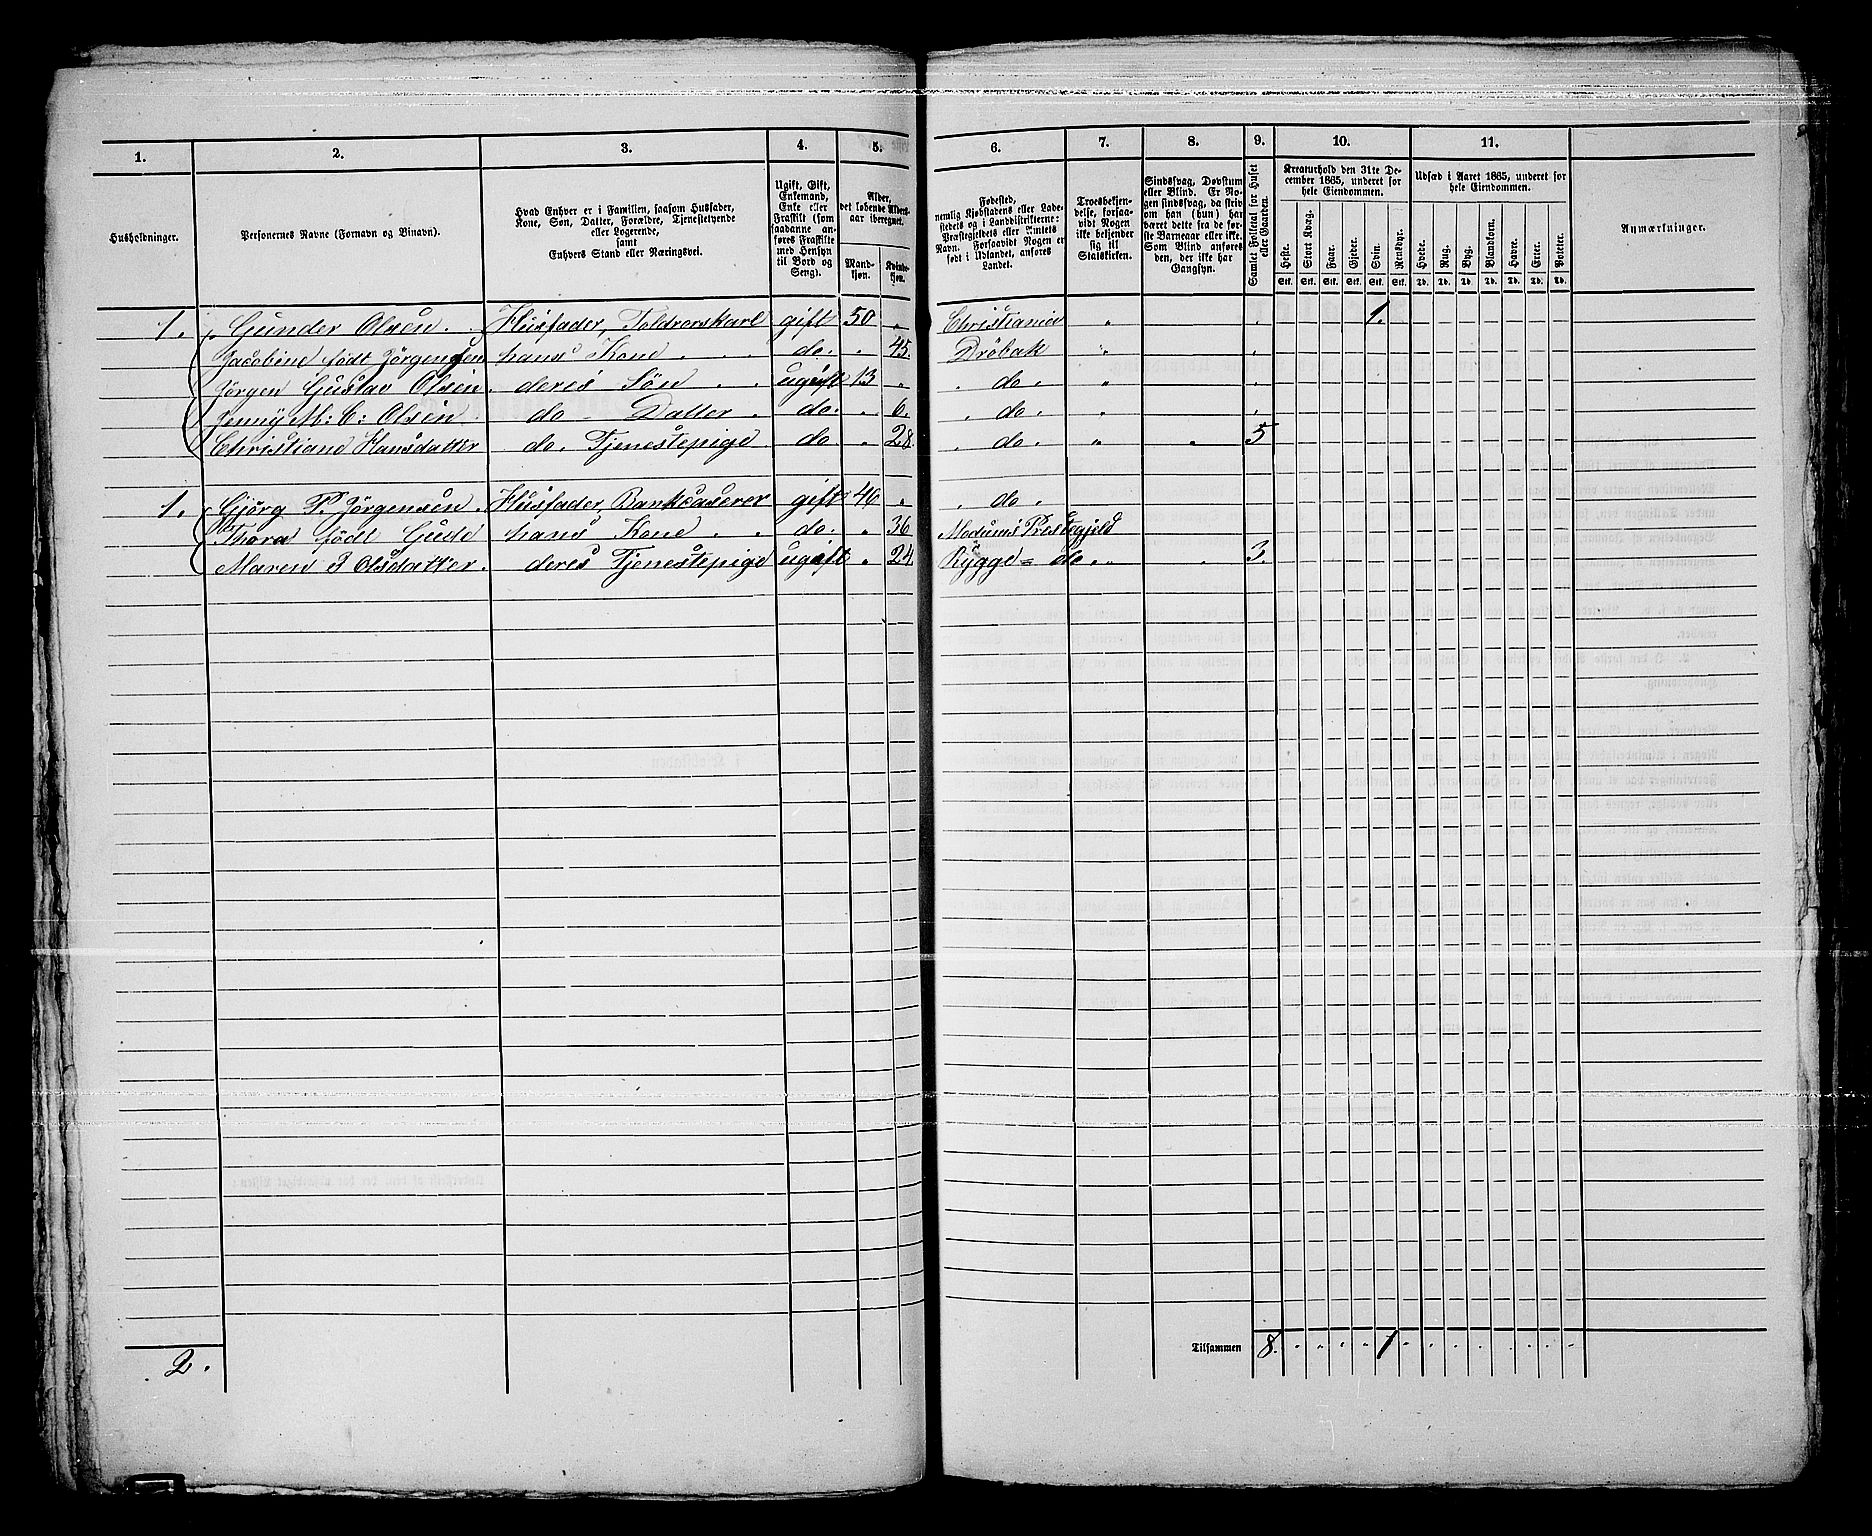 1.
2.
3.
4.
5.
6.
7.
8.
9.
10.
11.
Husholdninger.
Personernes Navne (Fornavn og Binavn).
Hvad Enhver er i Familien, saasom Husfader,
Kone, Søn, Datter, Forældre, Tjenestetyende
eller Logerende,
samt
Enhvers Stand eller Næringsvei.
Ugift, Gift,
Enkemand,
Enke eller
Fraskilt (som
saadanne an-
føres Fraskilte
med Hensyn
til Bord og
Seng).
Alder,
det løbende Alders-
aar iberegnet.
Mand-
kjøn.
Kvinde-
kjøn.
Fødested,
nemlig Kjøbstadens eller Lade-
stedets og i Landdistrikterne:
Præstegjeldets eller Amtets
Navn. Forsaavidt Nogen er
født i Udlandet, anføres
Landet.
Troesbekjen-
delse, forsaa-
vidt Nogen
ikke bekjender
sig til
Statskirken.
Sindssvag, Døvstum
eller Blind. Er No-
gen sindssvag, da skriv
om han (hun) har
været dette fra de før-
ste Barneaar eller ikke.
Som Blind anføres
den, der ikke har
Gangsyn.
Samlet Folketal for Huset
eller Gaarden.
Kreaturhold den 31te De-
cember 1865, underet for
hele Eiendommen.
Heste.
Stort Kvæg.
Faar.
Gjeder.
Svin.
Rensdyr.
Stk. Stk. Stk. Stk. Stk. Stk.
Udsæd i Aaret 1865, underet for
hele Eiendommen.
Hvede.
Rug.
Byg.
Blandkorn.
Havre.
Erter.
Poteter.
Td. Td. Td. Td. Td. Td. Td.
Anmærkninger.
1. Gunder Olsen. Husfader, Toldrorskarl gift 50 " Christiania " 1.
Jacobine født Jörgensen hans Kone do. " 45. Dröbak "
Jörgen Gustav Olsen. deres Sön ugift 13 " do. "
Jenny M: C: Olsen do Datter do. " 6. do. "
Christiane Hansdatter do. Tjenestepige do " 28. do. " " 5
1. Gjörg P. Jörgensen. Husfader, Bankcaserer gift 46 " do "
Thora födt Gude hans Kone do. " 36 Modums Prestegjeld
Maren J Olsdatter. deres Tjenestepige ugift " 24. Rygge = do. " 3.
2.
Tilsammen 8. 1